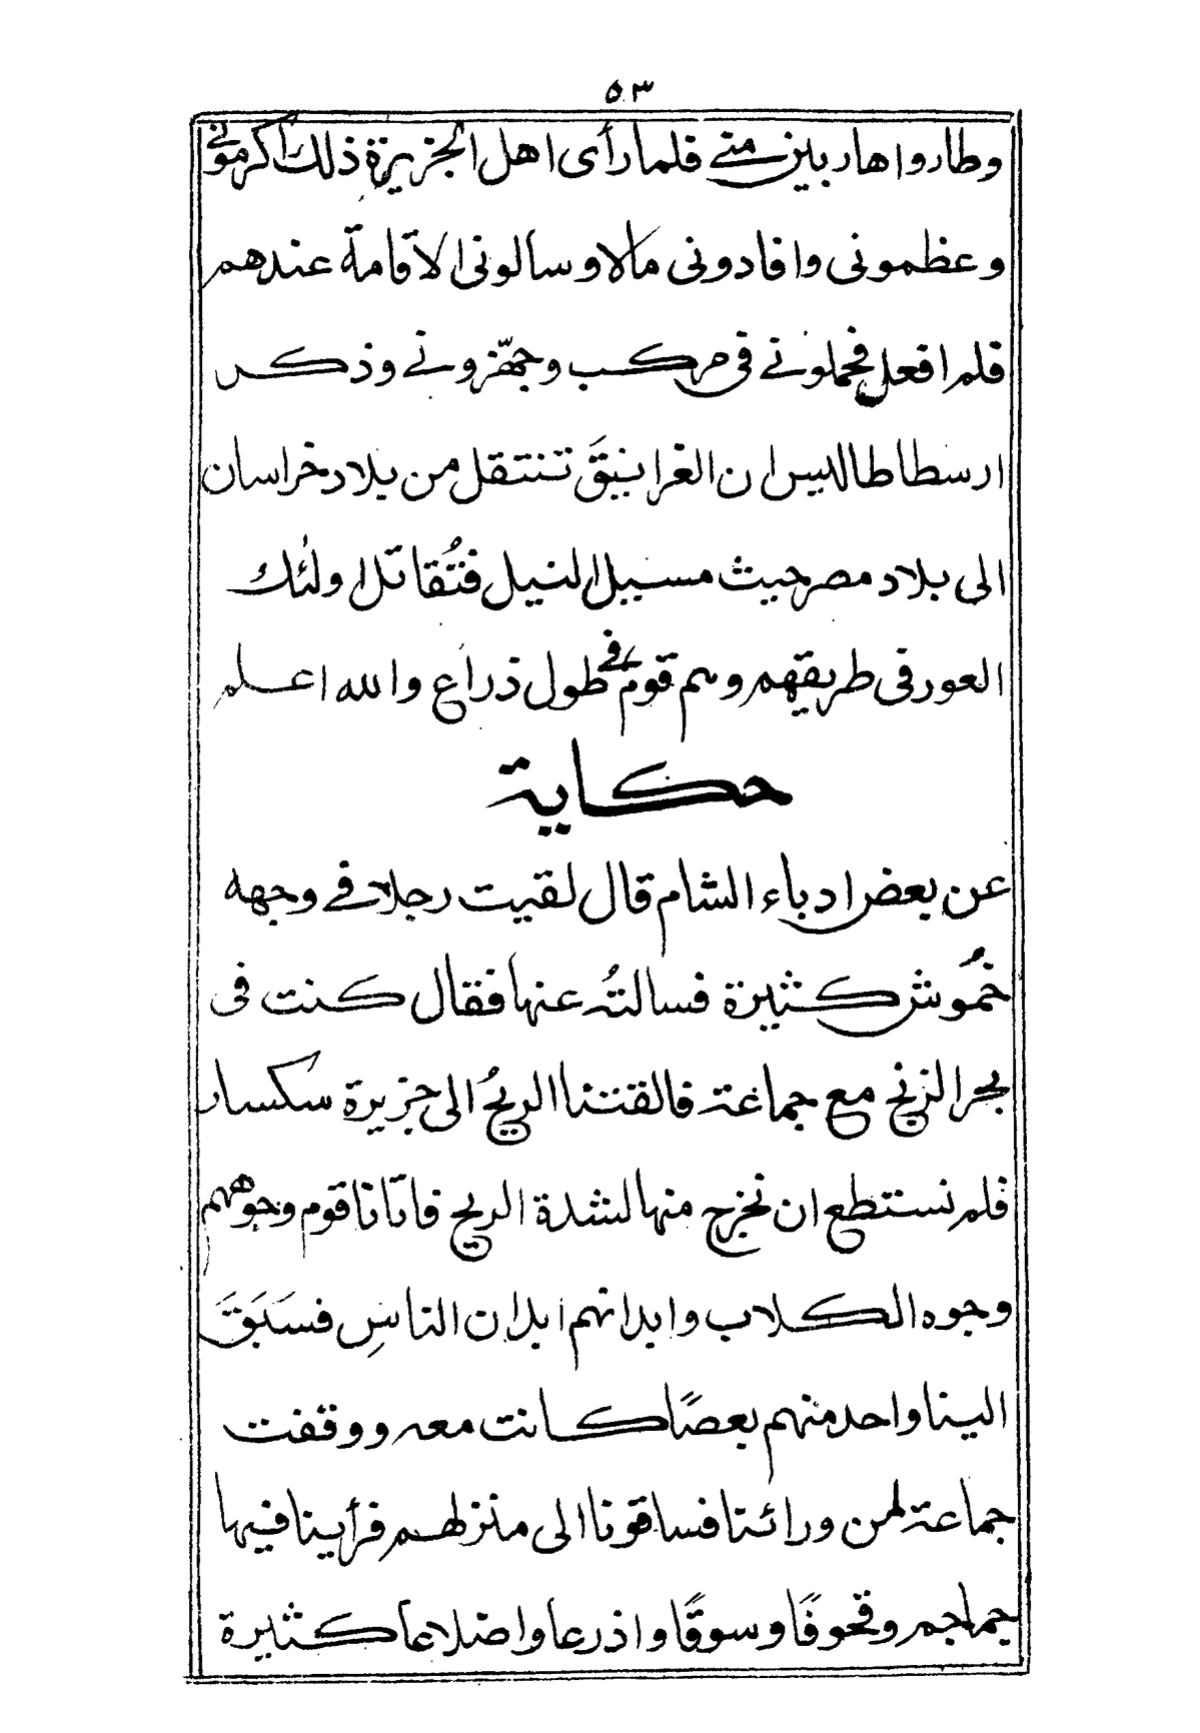 ٥٣
وطاروا هاربين منے فلما رأى اهل الجزيرة ذلك اكرمونے
وعظمونى وافادونى مالا وسالونى الاقامة عندهم
فلم افعل فحملونے فى مركب وجهّزونے وذكر
ارسطاطاليس ان الغرانيقَ تنتقل من بلاد خراسان
الى بلاد مصر حيث مسيل النيل فتُقاتل اولئك
العور فى طريقهم وهم قوم فے طول ذراع والله اعلم
حكاية
عن بعض ادباء الشام قال لقيت رجلا فے وجهه
خُموش كثيرة فسالتُه عنها فقال كنت فى
بحر الزنج مع جماعة فالقتنا الريحُ الى جزيرة سكسار
فلم نستطع ان نخرج منها لشدة الريح فاتانا قوم وجوههم
وجوه الكلاب وابدانهم ابدان الناسِ فسَبَقَ
الينا واحد منهم بعصًا كانت معه ووقفت
جماعة لهمن ورائنا فساقونا الى منزلهم فرأينا فيها
جماجم وقحوفًا وسوقًا واذرعا واضلاعا كثيرة